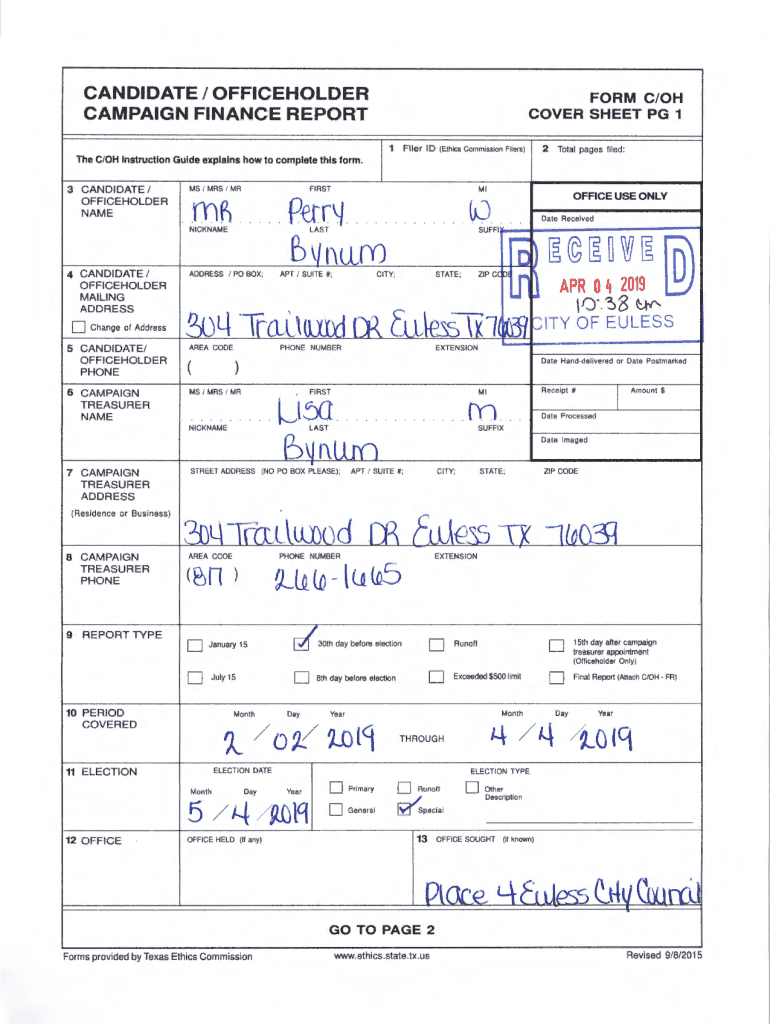 CANDIDATE / OFFICEHOLDER
CAMPAIGN FINANCE REPORT
FORM C/OH
COVER SHEET PG 1
The C/OH Instruction Guide explains how to complete this form.
1 Filer ID (Ethics Commission Filers)
2 Total pages filed:
3 CANDIDATE /
OFFICEHOLDER
NAME
MS / MRS / MR FIRST MI
MR Perry W
NICKNAME LAST SUFFIX
Bynum
OFFICE USE ONLY
Date Received
RECEIVED
APR 04 2019
10:38 am
CITY OF EULESS
4 CANDIDATE /
OFFICEHOLDER
MAILING
ADDRESS
Change of Address
ADDRESS / PO BOX; APT / SUITE #; CITY; STATE; ZIP CODE
304 Trailwood DR Euless TX 76039
5 CANDIDATE/
OFFICEHOLDER
PHONE
AREA CODE PHONE NUMBER EXTENSION
( )
Date Hand-delivered or Date Postmarked
6 CAMPAIGN
TREASURER
NAME
MS / MRS / MR FIRST MI
Lisa M
NICKNAME LAST SUFFIX
Bynum
Receipt # Amount $
Date Processed
Date Imaged
7 CAMPAIGN
TREASURER
ADDRESS
(Residence or Business)
STREET ADDRESS (NO PO BOX PLEASE); APT / SUITE #; CITY; STATE; ZIP CODE
304 Trailwood DR Euless TX 76039
8 CAMPAIGN
TREASURER
PHONE
AREA CODE PHONE NUMBER EXTENSION
(817) 266-1665
9 REPORT TYPE
January 15 30th day before election Runoff 15th day after campaign
treasurer appointment
(Officeholder Only)
July 15 8th day before election Exceeded $500 limit Final Report (Attach C/OH - FR)
10 PERIOD
COVERED
Month Day Year Month Day Year
2 / 02 / 2019 THROUGH 4 / 4 / 2019
11 ELECTION
ELECTION DATE
Month Day Year
5 / 4 / 2019
ELECTION TYPE
Primary Runoff Other
Description
General Special
12 OFFICE
OFFICE HELD (if any)
13 OFFICE SOUGHT (if known)
Place 4 Euless City Council
GO TO PAGE 2
Forms provided by Texas Ethics Commission www.ethics.state.tx.us Revised 9/8/2015